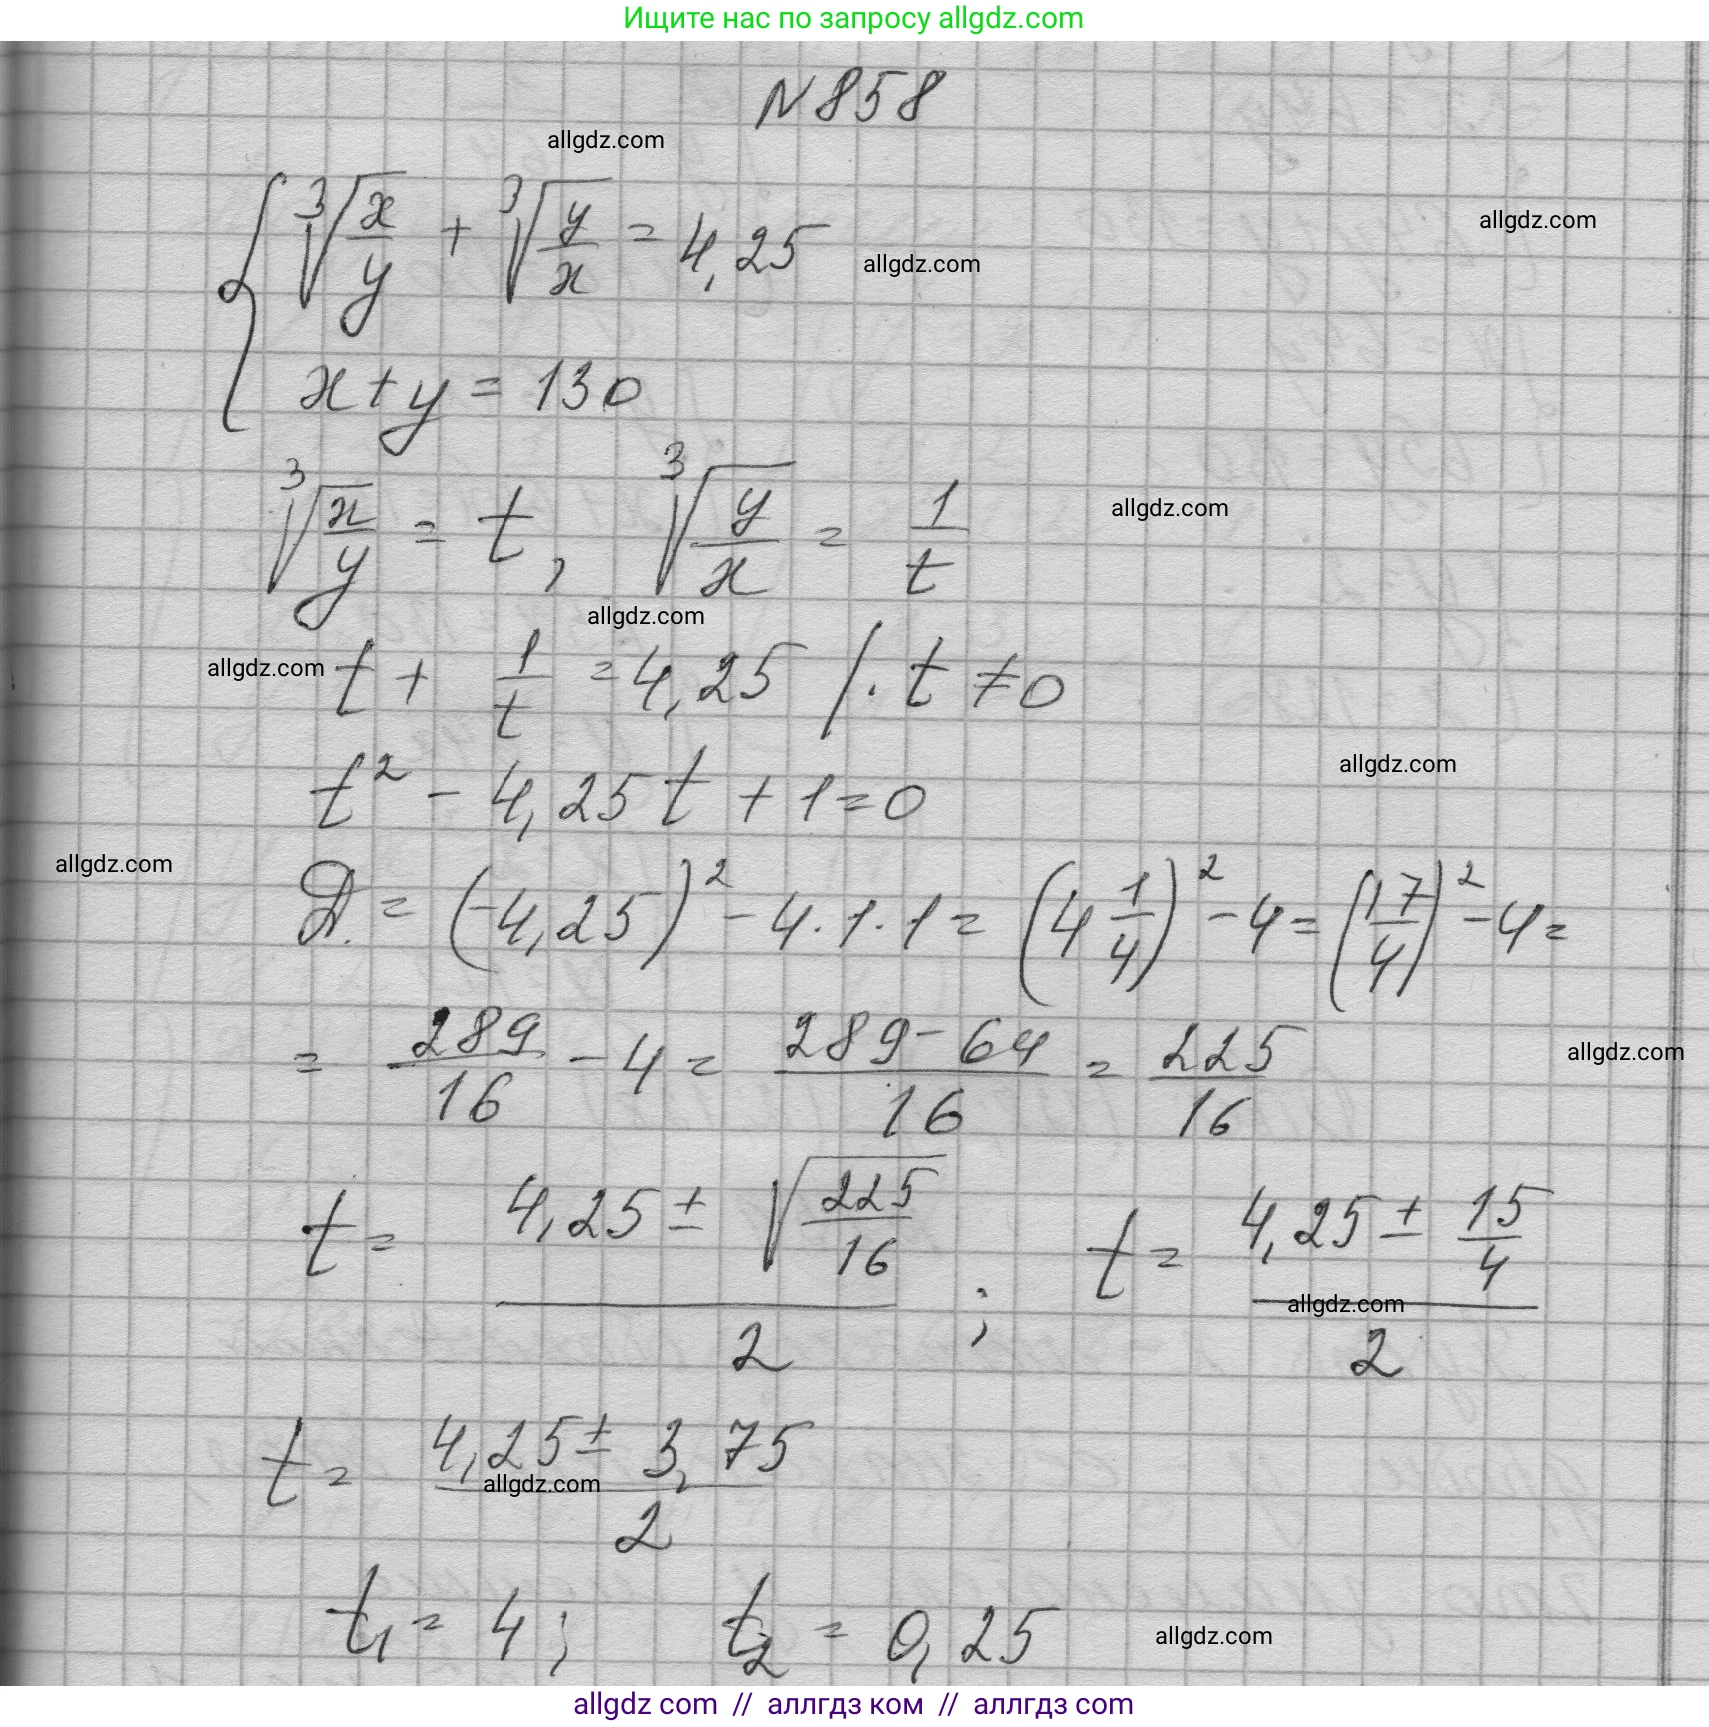 Ищите нас по запросу allgdz.com
N 858
allgdz.com
∛(x/y) + ∛(y/x) = 4,25
allgdz.com
allgdz.com
x + y = 130
∛(x/y) = t, ∛(y/x) = 1/t
allgdz.com
allgdz.com
allgdz.com
t + 1/t = 4,25 / · t ≠ 0
t² - 4,25t + 1 = 0
allgdz.com
allgdz.com
Д. = (-4,25)² - 4·1·1 = (4 1/4)² - 4 = (17/4)² - 4 =
= 289/16 - 4 = (289 - 64)/16 = 225/16
allgdz.com
t = (4,25 ± √(225/16))/2 ; t = (4,25 ± 15/4)/2
allgdz.com
t = (4,25 ± 3,75)/2
allgdz.com
t₁ = 4; t₂ = 0,25
allgdz.com
allgdz com // аллгдз ком // аллгдз com